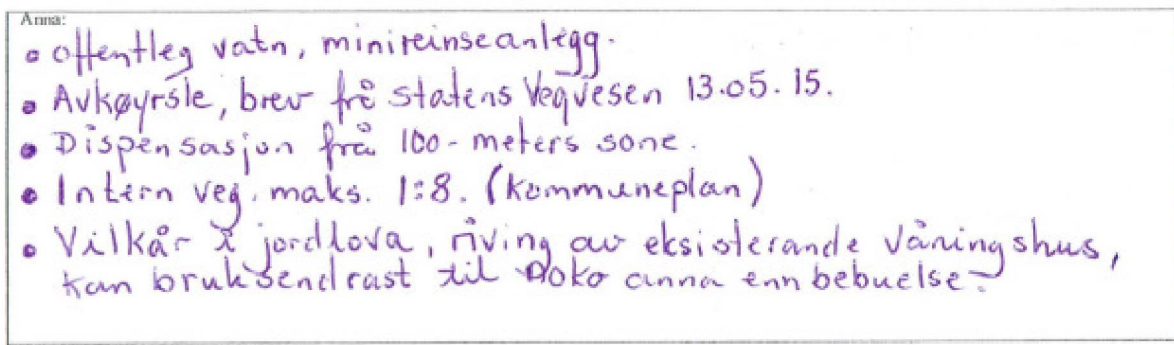 Anna:
• offentleg vatn, minireinseanlegg.
• Avkøyrsle, brev frå statens Vegvesen 13.05.15.
• Dispensasjon frå 100-meters sone.
• Intern veg, maks. 1:8. (kommuneplan)
• Vilkår i jordlova, riving av eksisterande våningshus,
kan bruksendrast til noko anna enn bebuelse.